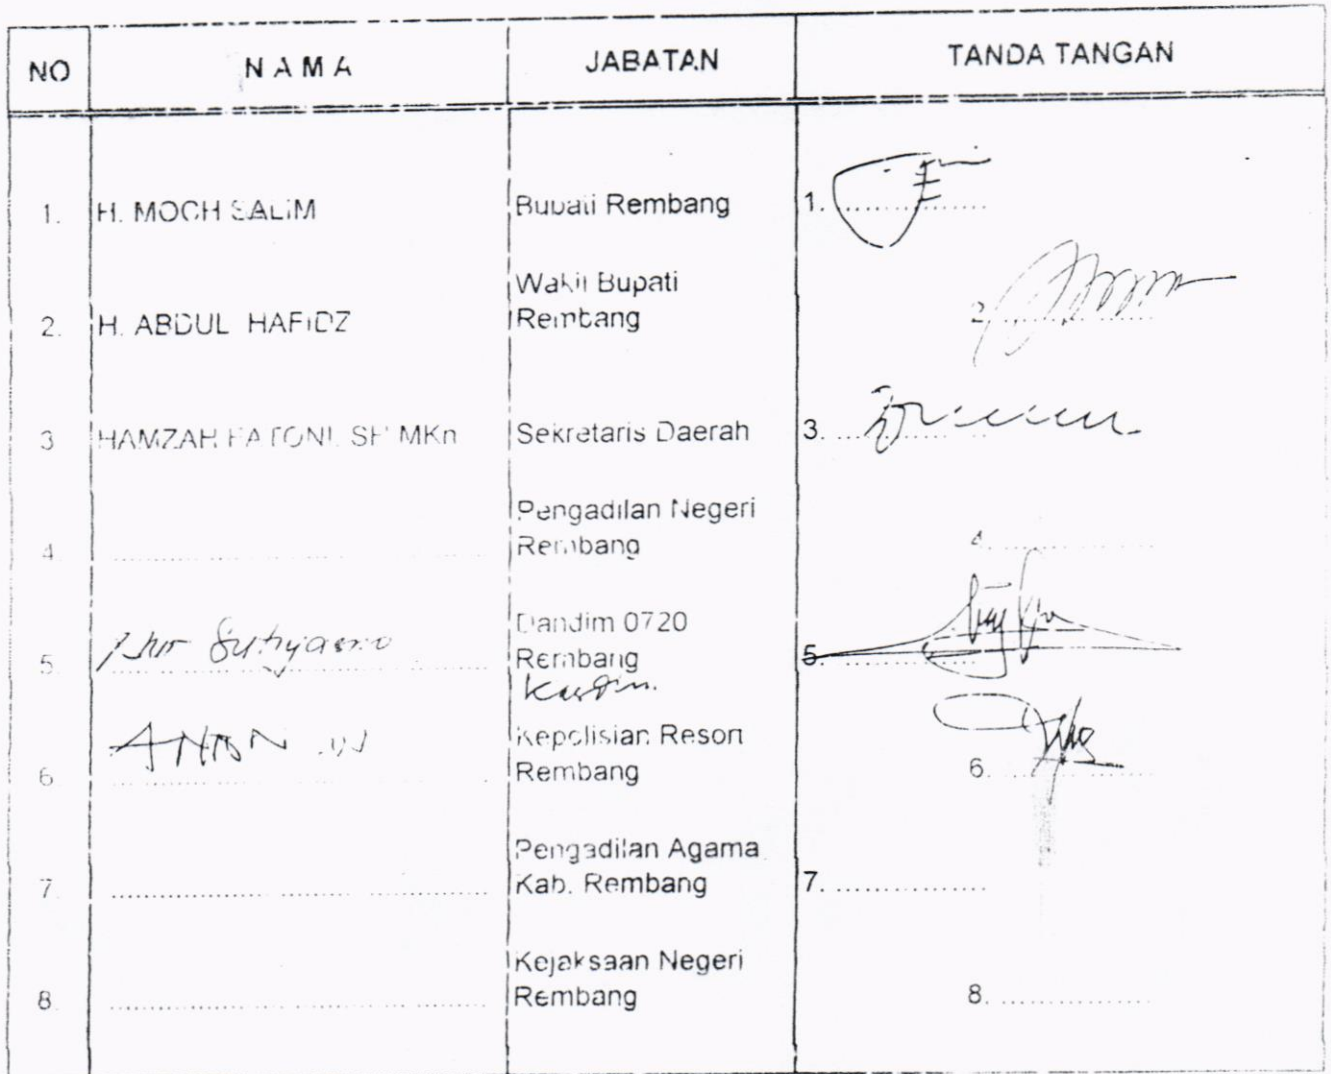 NO NAMA JABATAN TANDA TANGAN
1. H. MOCH SALIM Bupati Rembang 1.
Wakil Bupati
2. H. ABDUL HAFIDZ Rembang 2.
3 HAMZAH FATONI. SH MKn Sekretaris Daerah 3.
Pengadilan Negeri
4. Rembang 4.
Dandim 0720
5. Rembang 5.
Kasdim.
ANTON Kepolisian Resort
6. Rembang 6.
Pengadilan Agama
7. Kab. Rembang 7.
Kejaksaan Negeri
8. Rembang 8.